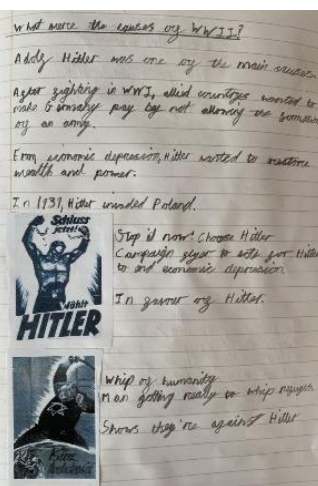 What were the causes of WWII?
Adolf Hitler was one of the main causes.
After fighting in WWI, allied countrys wanted to
make Germany pay by not allowing the formation
of an army.
From economic depression, Hitler wanted to restore
wealth and power.
In 1939, Hitler invaded Poland.
Schluss
jetzt!
wählt
HITLER
Stop it now! Choose Hitler
Campaign flyer to vote for Hitler
to end economic depression.
In favour of Hitler.
Whip of humanity
Man getting ready to whip
Shows they're against Hitler